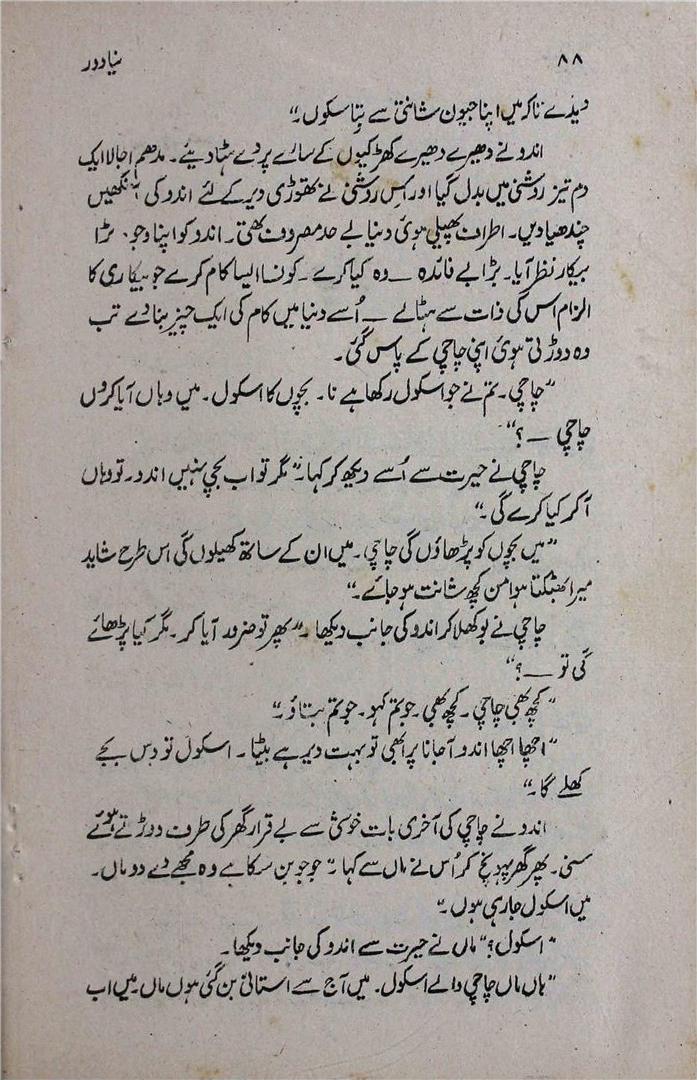 ۸۸
نیا دور
دیدے تاکہ میں اپنا جیون شانتی سے بِتا سکوں۔“
اندو نے دھیرے دھیرے کھڑکیوں کے سارے پردے ہٹا دیئے۔ مدھم اجالا ایک
دم تیز روشنی میں بدل گیا اور اس روشنی نے تھوڑی دیر کے لئے اندو کی آنکھیں
چندھیا دیں۔ اطراف پھیلی ہوئی دنیا بے حد مصروف تھی۔ اندو کو اپنا وجود بڑا
بیکار نظر آیا۔ بڑا بے فائدہ ــ وہ کیا کرے ۔ کونسا ایسا کام کرے جو بیکاری کا
الزام اس کی ذات سے ہٹالے ــ اُسے دنیا میں کام کی ایک چیز بنا دے تب
وہ دوڑتی ہوئی اپنی چاچی کے پاس گئی۔
”چاچی۔ تم نے جو اسکول رکھا ہے نا۔ بچوں کا اسکول۔ میں وہاں آیا کروں
چاچی ــ ؟“
چاچی نے حیرت سے اُسے دیکھ کر کہا۔ ”مگر تو اب بچی نہیں اندو۔ تو وہاں
آکر کیا کرے گی۔“
”میں بچوں کو پڑھاؤں گی چاچی۔ میں ان کے ساتھ کھیلوں گی اس طرح شاید
میرا بھٹکتا ہوا من کچھ شانت ہو جائے۔“
چاچی نے بوکھلا کر اندو کی جانب دیکھا۔ ”پھر تو ضرور آیا کر۔ مگر کیا پڑھائے
گی تو ــــ ؟“
”کچھ بھی چاچی۔ کچھ بھی۔ جو تم کہو۔ جو تم بتاؤ۔“
”اچھا اچھا اندو آجانا پر ابھی تو بہت دیر ہے بیٹا۔ اسکول تو دس بجے
کھلے گا۔“
اندو نے چاچی کی آخری بات خوشی سے بے قرار گھر کی طرف دوڑتے ہوئے
سنی۔ پھر گھر پہونچ کر اُس نے ماں سے کہا۔ ”جو جو بن سکا ہے وہ مجھے دے دو ماں۔
میں اسکول جا رہی ہوں۔“
”اسکول؟“ ماں نے حیرت سے اندو کی جانب دیکھا۔
”ہاں ماں چاچی والے اسکول۔ میں آج سے استانی بن گئی ہوں ماں۔ میں اب